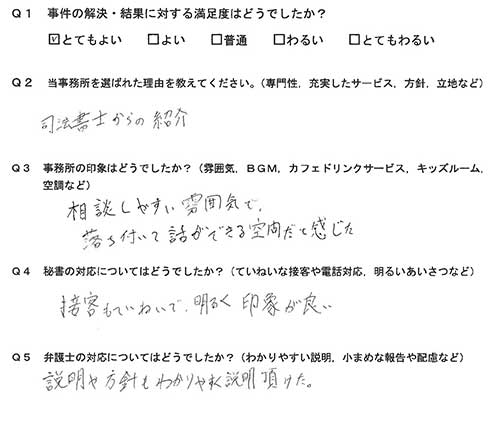 Q1 事件の解決・結果に対する満足度はどうでしたか？
☑とてもよい □よい □普通 □わるい □とてもわるい
Q2 当事務所を選ばれた理由を教えてください。（専門性，充実したサービス，方針，立地など）
司法書士からの紹介
Q3 事務所の印象はどうでしたか？（雰囲気，BGM，カフェドリンクサービス，キッズルーム，
空調など）
相談しやすい雰囲気で，
落ち付いて話ができる空間だと感じた
Q4 秘書の対応についてはどうでしたか？（ていねいな接客や電話対応，明るいあいさつなど）
接客もていねいで，明るく印象が良い
Q5 弁護士の対応についてはどうでしたか？（わかりやすい説明，小まめな報告や配慮など）
説明や方針もわかりやすく説明頂けた。